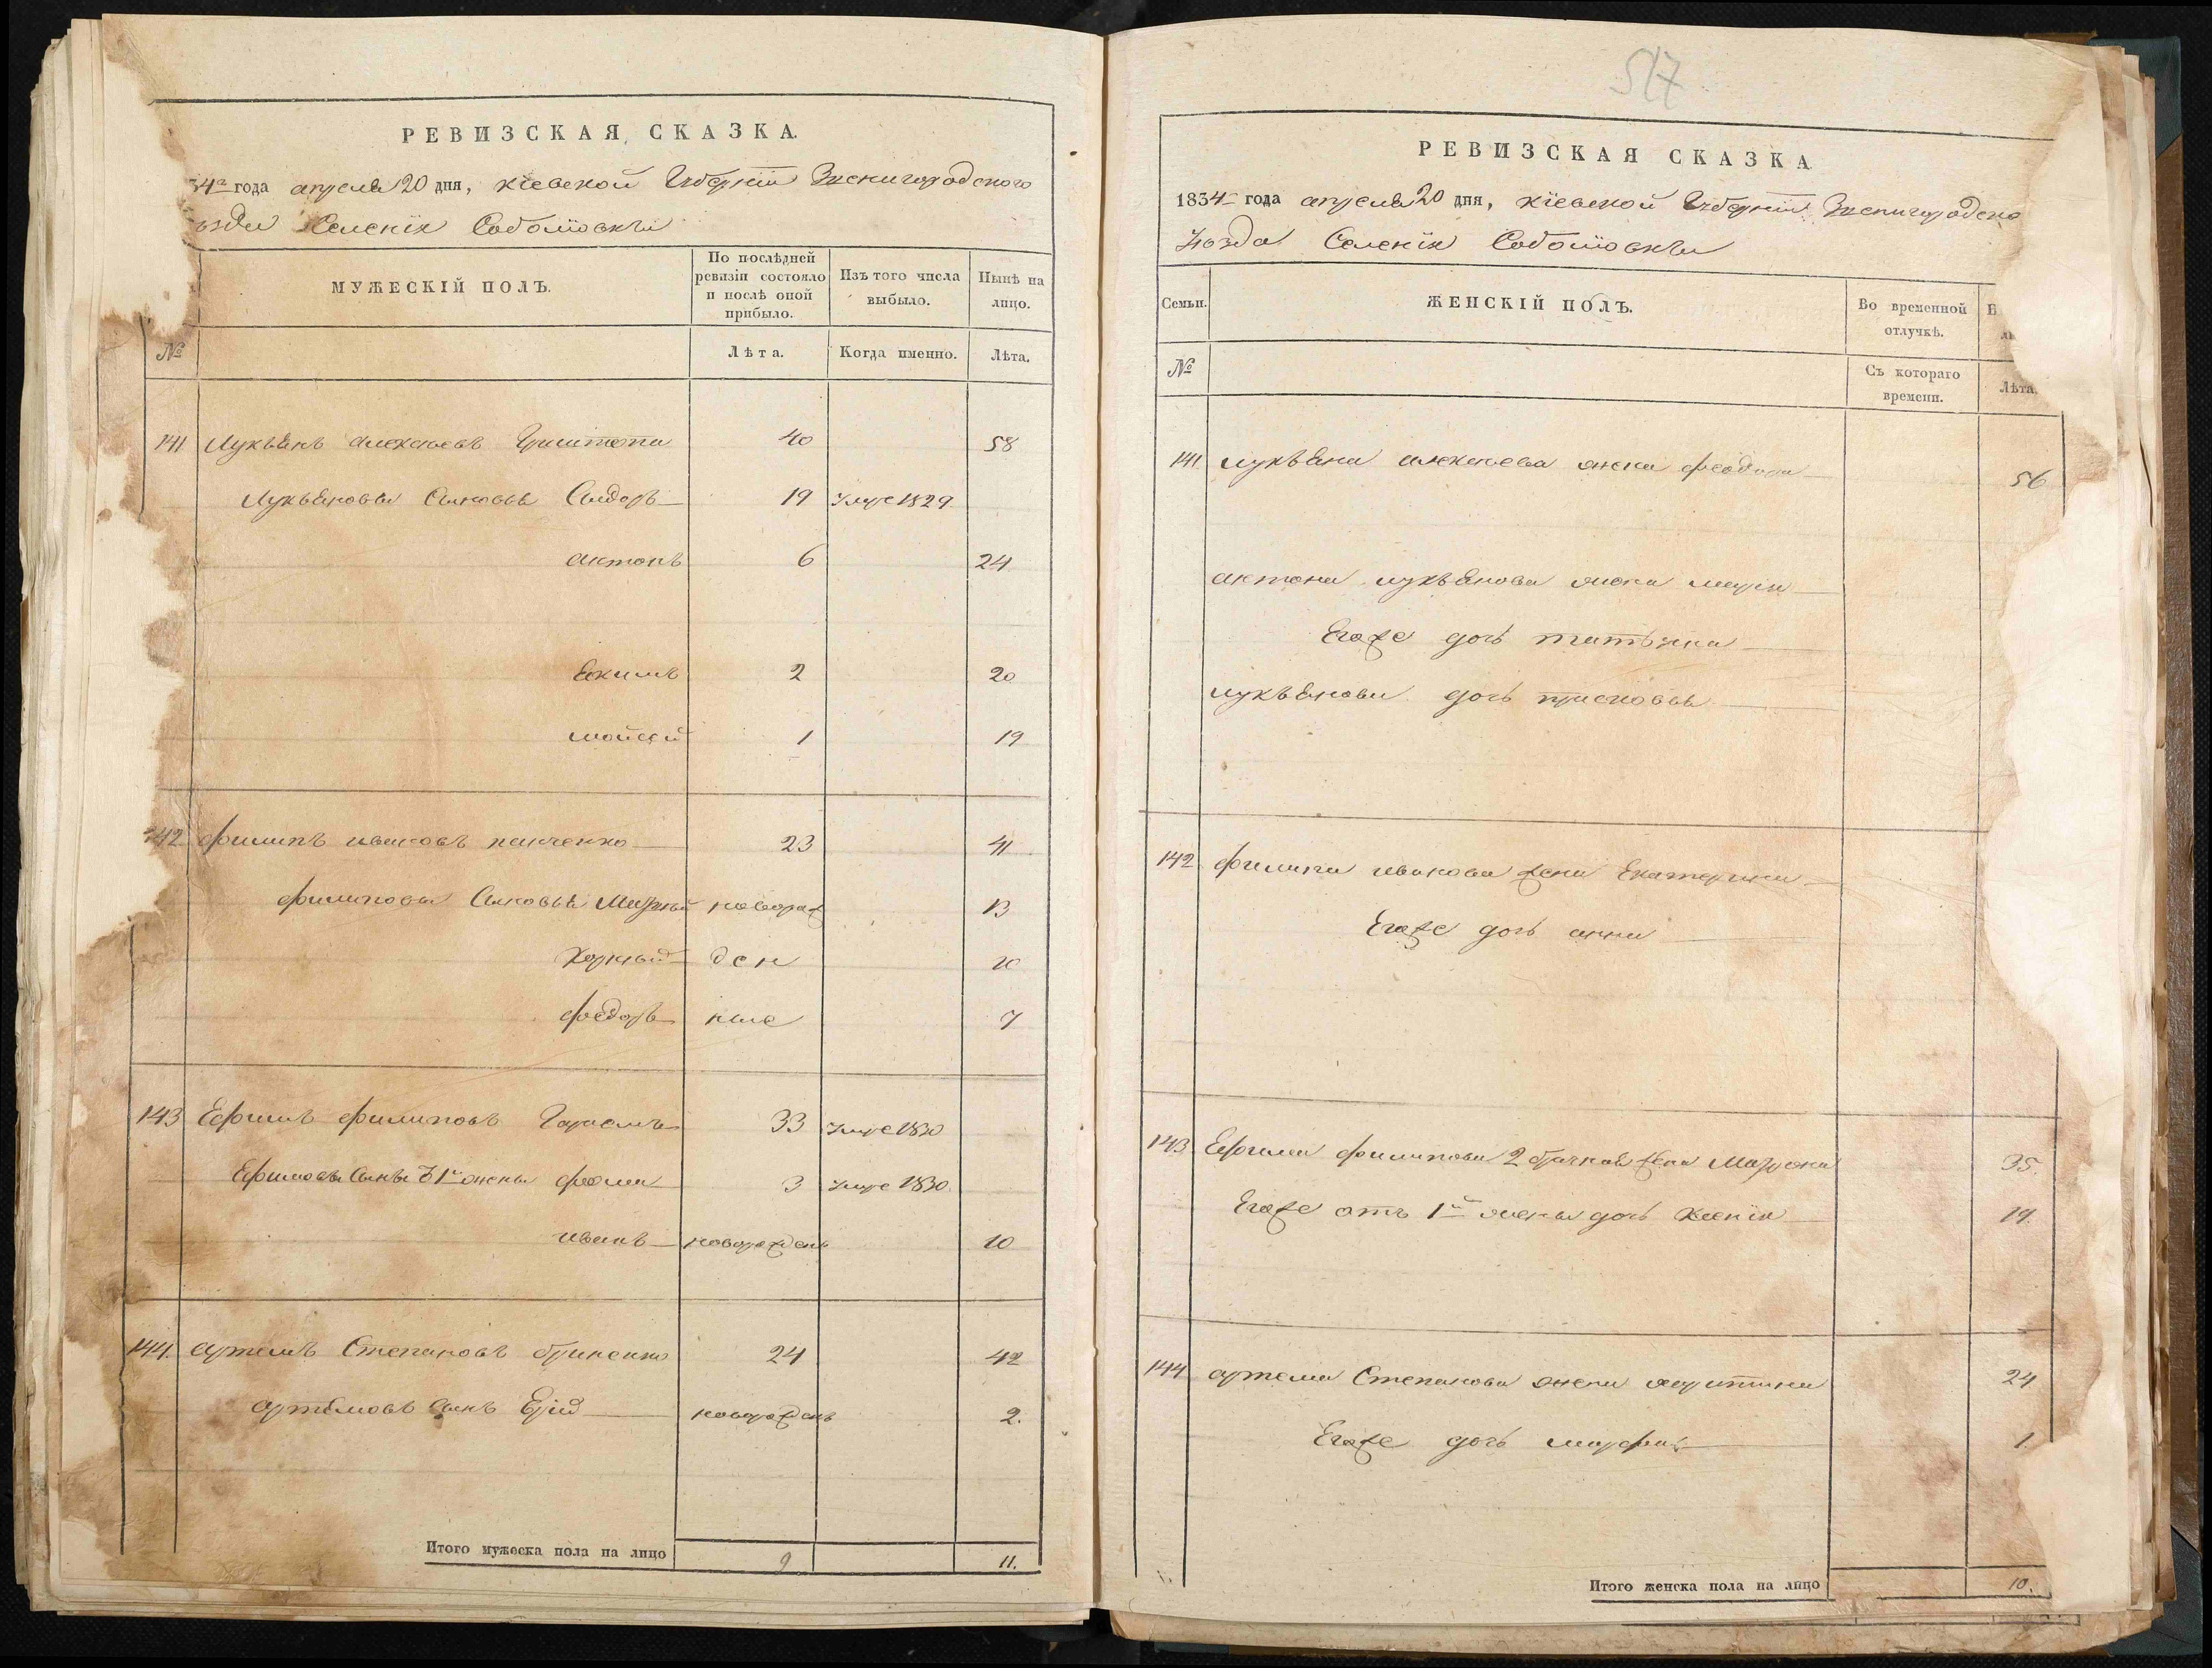 РЕВИЗСКАЯ СКАЗКА.
34го года апреля 20 дня, Кіевской Губерніи Звенигородского
езда Селенія Соболіовки
МУЖЕСКІЙ ПОЛЪ.
По послѣдней ревизіи состояло и послѣ оной прибыло.
Изъ того числа выбыло.
Нынѣ на лицо.
№
Лѣта.
Когда именно.
Лѣта.
141 Лукьянъ Алексеевъ 40 58
Лукьяновы Сыновья Сидоръ 19 Умре 1829
Антонъ 6 24
Екимъ 2 20
Мойсей 1 19
142 Филипъ Ивановъ Панченко 23 41
Филиповы Сыновья новораж 13
ден 10
Феодоръ ные 7
143 Ефимъ Филиповъ 33 Умре 1830
Ефимовы Сыны 1й жены Фома 3 Умре 1830
Иванъ новорожденъ 10
144. Артемъ Степановъ Гриненко 24 42
Артемовъ Сынъ новорожденъ 2.
Итого мужеска пола на лицо 9 11.
517
РЕВИЗСКАЯ СКАЗКА
1834го года апреля 20 дня, Кіевской Губерніи Звенигородско
Уезда Селенія Соболіовки
Семьи.
ЖЕНСКІЙ ПОЛЪ.
Во временной отлучкѣ.
№
Съ котораго времени.
Лѣта.
141 Лукьяна Алексеева жена Феодора 56
Антона Лукьянова жена Мария
Егоже дочь Татьяна
Лукьянова дочь Присковья
142 Филипа Иванова жена Екатерина
Егоже дочь Анна
143 Ефима Филипова 2 брачная жена Матрона 35.
Егоже отъ 1й жены дочь Ксенія 19.
144 Артема Степанова жена Харитина 24
Егоже дочь Марфа 1
Итого женска пола на лицо 10.